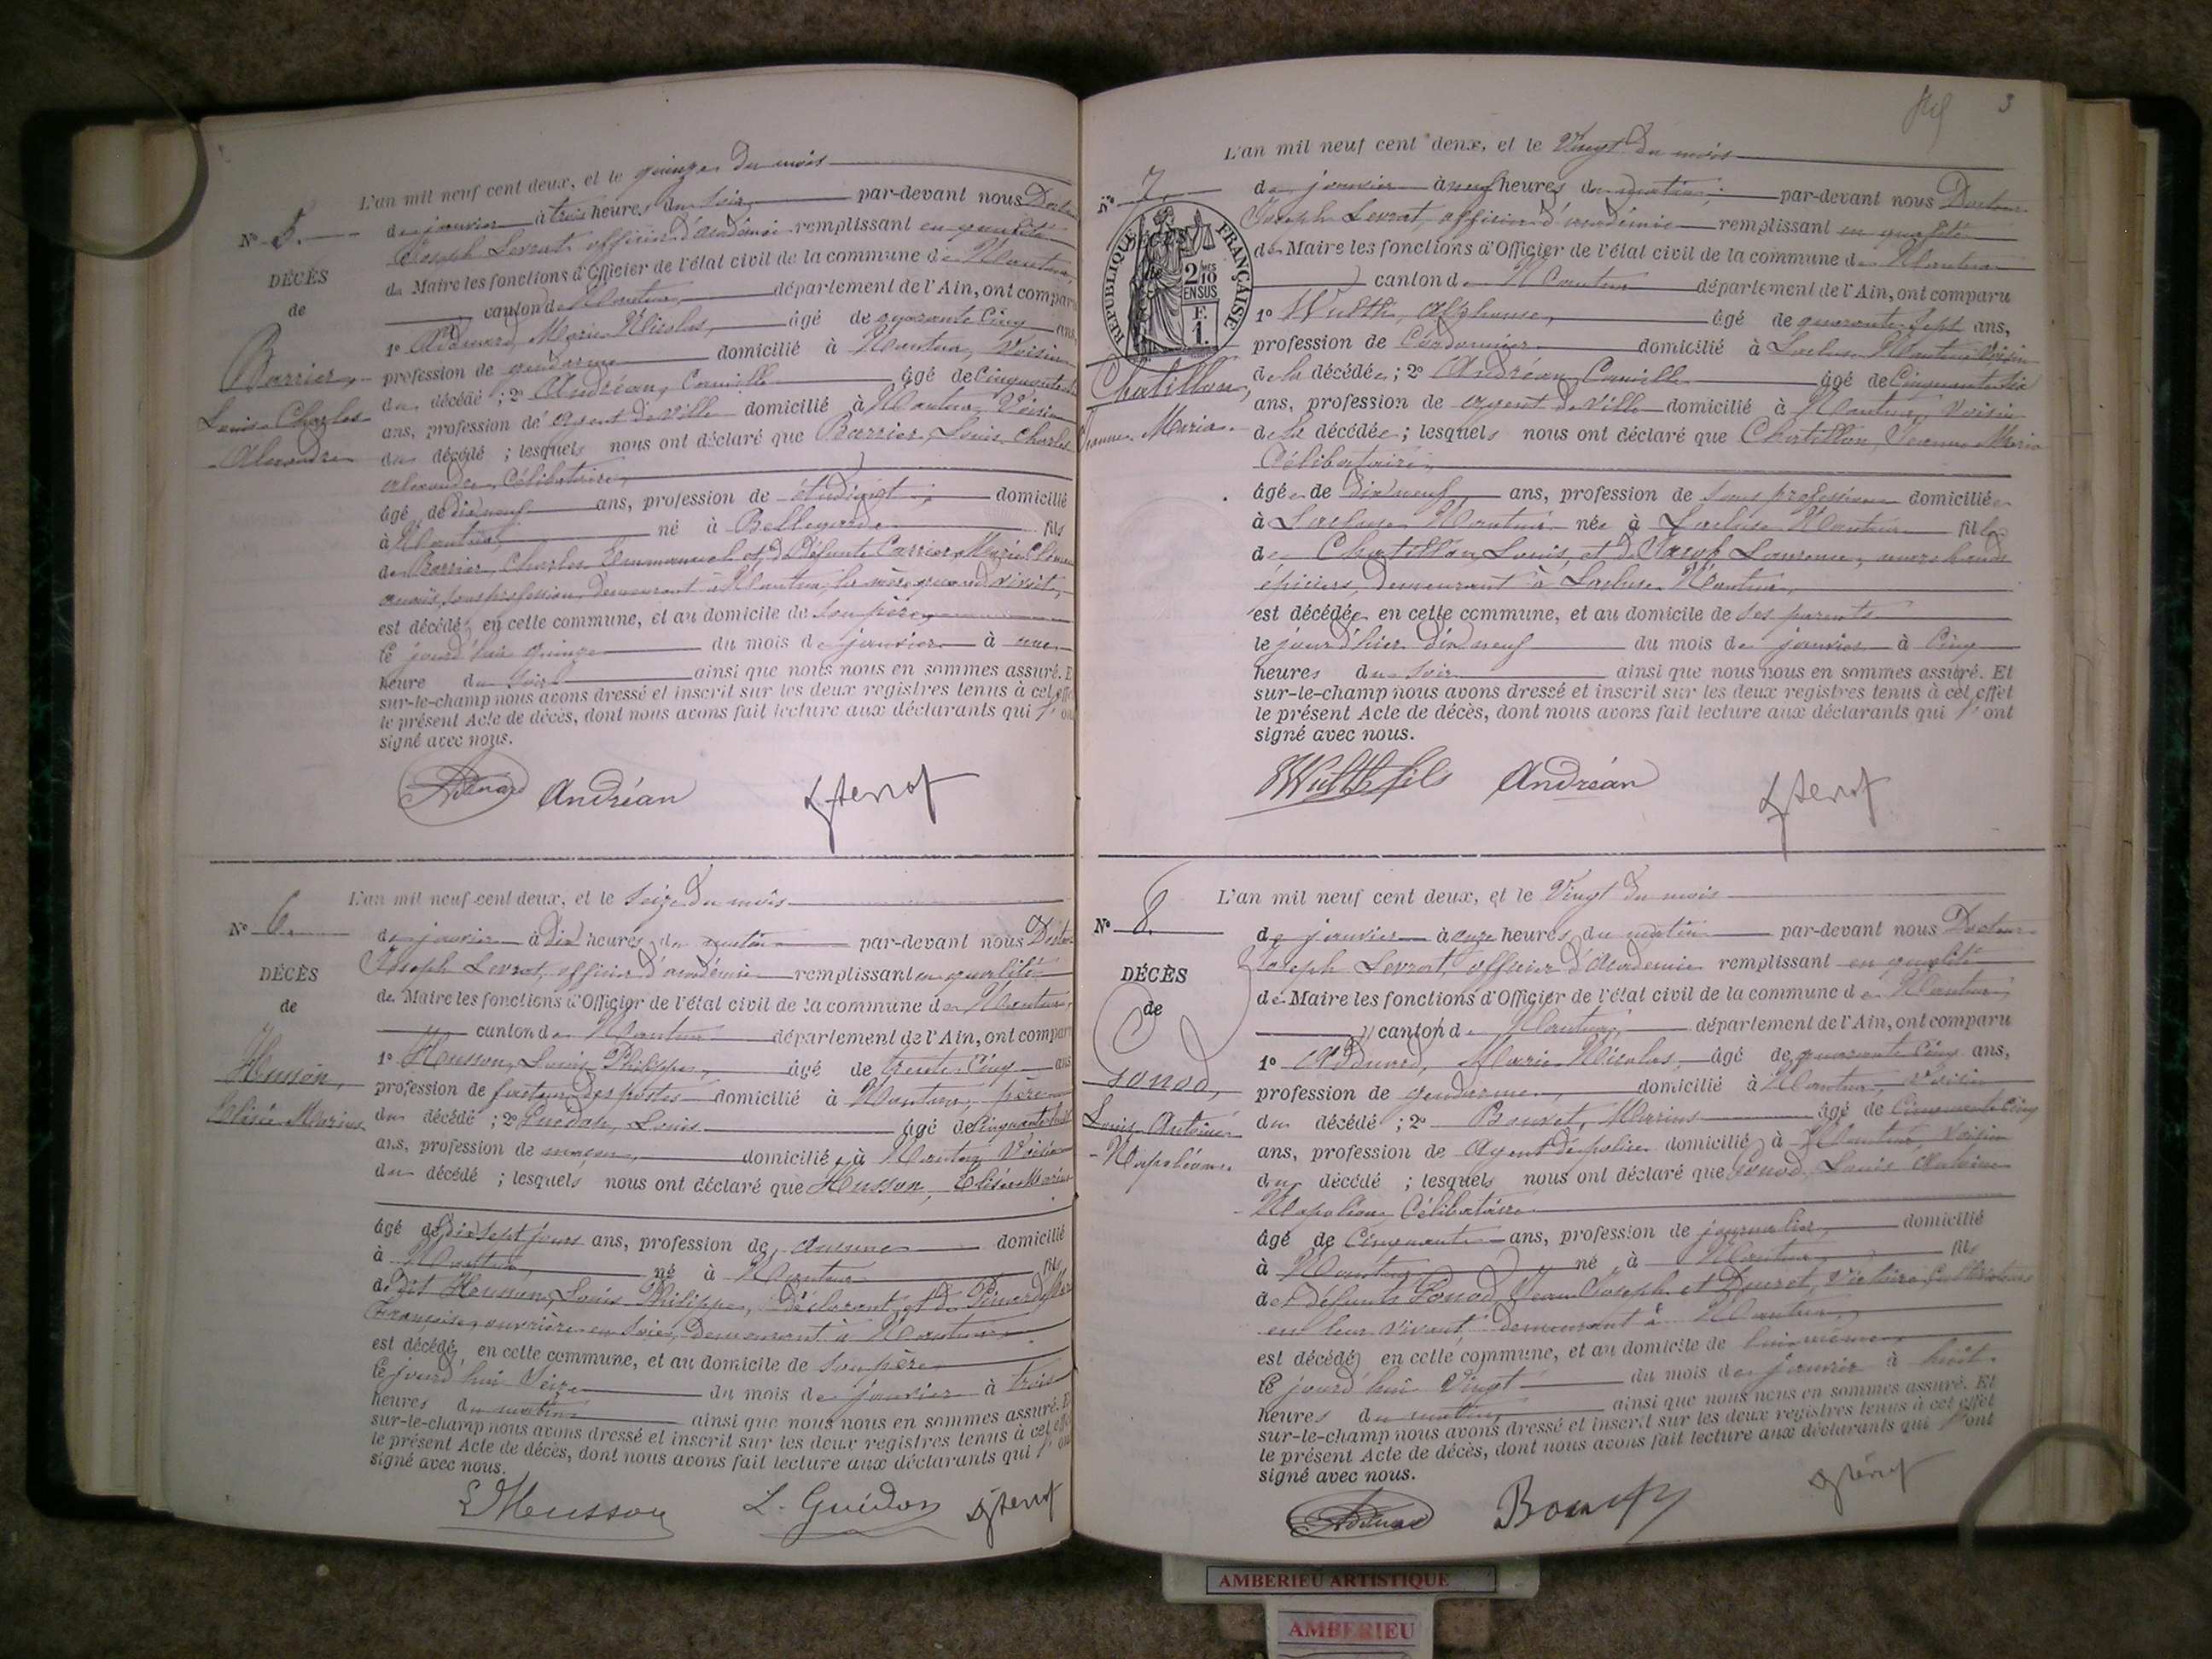 L'an mil neuf cent deux, et le quinze du mois
N° 5.
de janvier à trois heures du soir par-devant nous Docteur
Joseph Levrat, officier d'académie remplissant en qualité
DÉCÈS
de Maire les fonctions d'Officier de l'état civil de la commune de Nantua
de
canton de Nantua, département de l'Ain, ont comparu
1° Adnard, Marie Nicolas, âgé de quarante cinq ans,
Barrier,
profession de gendarme domicilié à Nantua, Voisin
Louis Charles
du décédé ; 2° Andréan, Camille âgé de cinquante
Alexandre
ans, profession de agent de ville domicilié à Nantua, Voisin
du décédé ; lesquels nous ont déclaré que Barrier, Louis, Charles
Alexandre, Célibataire,
âgé de dix neuf ans, profession de étudiant, domicilié
à Nantua, né à Bellegarde fils
de Barrier, Charles Emmanuel et de défunte Carrier, Marie
sans profession, demeurant à Nantua, la mère quand vivait,
est décédé, en cette commune, et au domicile de son père,
le jourd'hui quinze du mois de janvier à une
heure du soir ainsi que nous nous en sommes assuré. Et
sur-le-champ nous avons dressé et inscrit sur les deux registres tenus à cet effet
le présent Acte de décès, dont nous avons fait lecture aux déclarants qui l'ont
signé avec nous.
Andréan
L'an mil neuf cent deux, et le seize du mois
N° 6.
de janvier à dix heures du matin par-devant nous Docteur
Joseph Levrat, officier d'académie remplissant en qualité
DÉCÈS
de Maire les fonctions d'Officier de l'état civil de la commune de Nantua,
de
canton de Nantua département de l'Ain, ont comparu
1° Husson, Louis Philippe, âgé de trente cinq ans
Husson,
profession de facteur des postes domicilié à Nantua, père
Elisée Marius
du décédé ; 2° Guédon, Louis âgé de cinquante huit
ans, profession de maçon, domicilié à Nantua, Voisin
du décédé ; lesquels nous ont déclaré que Husson, Elisée Marius
âgé de dix sept jours ans, profession de aucune domicilié
à Nantua, né à Nantua fils
de dit Husson, Louis Philippe, déclarant, et de
Françoise, ouvrière en soie, demeurant à Nantua
est décédé, en cette commune, et au domicile de son père
le jourd'hui seize du mois de janvier à trois
heures du matin ainsi que nous nous en sommes assuré. Et
sur-le-champ nous avons dressé et inscrit sur les deux registres tenus à cet effet
le présent Acte de décès, dont nous avons fait lecture aux déclarants qui l'ont
signé avec nous.
L Husson L. Guédon
3
L'an mil neuf cent deux, et le Vingt du mois
N° 7.
de janvier à neuf heures du matin, par-devant nous Docteur
Joseph Levrat, officier d'académie remplissant en qualité
RÉPUBLIQUE FRANÇAISE
2 10MES
EN SUS
F.
1.
de Maire les fonctions d'Officier de l'état civil de la commune de Nantua
canton de Nantua département de l'Ain, ont comparu
1° Wulth, Alphonse, âgé de quarante sept ans,
profession de Cordonnier domicilié à Lacluse, Nantua Voisin
Chatillon,
de la décédée ; 2° Andréan, Camille âgé de Cinquante six
Jeanne Maria.
ans, profession de agent de Ville domicilié à Nantua, Voisin
de la décédée ; lesquels nous ont déclaré que Chatillon, Jeanne Maria
Célibataire,
âgée de dix neuf, ans, profession de sans profession domiciliée
à Lacluse Nantua née à Lacluse Nantua fille
de Chatillon, Louis, et de Jacob, Laurence, marchands
épiciers, demeurant à Lacluse Nantua,
est décédée en cette commune, et au domicile de ses parents
le jour d'hier dix neuf du mois de janvier à Cinq
heures du soir ainsi que nous nous en sommes assuré. Et
sur-le-champ nous avons dressé et inscrit sur les deux registres tenus à cet effet
le présent Acte de décès, dont nous avons fait lecture aux déclarants qui l'ont
signé avec nous.
Wulth fils Andréan
L'an mil neuf cent deux, et le Vingt du mois
N° 8.
de janvier à onze heures du matin par-devant nous Docteur
Joseph Levrat, officier d'Académie remplissant en qualité
DÉCÈS
de Maire les fonctions d'Officier de l'état civil de la commune de Nantua,
de
canton de Nantua, département de l'Ain, ont comparu
1° Adnard, Marie Nicolas, âgé de quarante cinq ans,
Gonod,
profession de gendarme, domicilié à Nantua, Voisin
Louis Antoine
du décédé ; 2° Bouvet, Marius âgé de Cinquante cinq
Napoléon.
ans, profession de Agent de police domicilié à Nantua, Voisin
du décédé ; lesquels nous ont déclaré que Gonod, Louis Antoine
Napoléon, Célibataire
âgé de Cinquante ans, profession de journalier, domicilié
à Nantua né à Nantua, fils
de défunts Gonod, Jean Joseph et Ducret, Victoire
en leur vivant, demeurant à Nantua,
est décédé en cette commune, et au domicile de lui même,
le jourd'hui Vingt du mois de janvier à huit
heures du matin, ainsi que nous nous en sommes assuré. Et
sur-le-champ nous avons dressé et inscrit sur les deux registres tenus à cet effet
le présent Acte de décès, dont nous avons fait lecture aux déclarants qui l'ont
signé avec nous.
AMBERIEU ARTISTIQUE
AMBERIEU